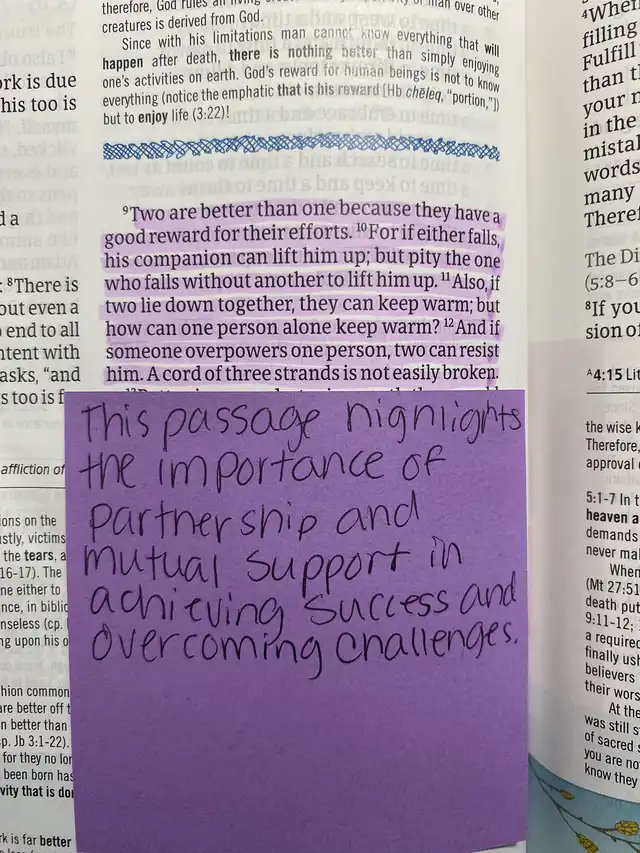 therefore, God rules all
over other
creatures is derived from God.
Since with his limitations man cannot know everything that will
happen after death, there is nothing better than simply enjoying
one's activities on earth. God's reward for human beings is not to know
everything (notice the emphatic that is his reward [Hb cheleq, "portion,"])
but to enjoy life (3:22)!
9Two are better than one because they have a
good reward for their efforts. 10For if either falls,
his companion can lift him up; but pity the one
who falls without another to lift him up. 11Also, if
two lie down together, they can keep warm; but
how can one person alone keep warm? 12And if
someone overpowers one person, two can resist
him. A cord of three strands is not easily broken.
This passage highlights
the importance of
partnership and
mutual support in
achieving success and
overcoming challenges.
rk is due
his too is
d a
: 8There is
out even a
end to all
ntent with
asks, "and
s too is
affliction of
ons on the
stly, victims
the tears, a
16-17). The
ne either to
nce, in biblic
nseless (cp.
ng upon his o
hion common
are better off t
n better than
p. Jb 3:1-22).
for they no lon
been born has
vity that is do
rk is far better
4When
filling
Fulfill
than t
your m
in the
mistak
words
many
Theref
The Di
(5:8–6
8If you
sion of
A4:15 Lit
the wise k
Therefore,
approval
5:1-7 In t
heaven a
demands
never mal
When
(Mt 27:51
death put
9:11-12;
a required
finally ush
believers
their wors
At the
was still s
of sacred
you are no
know they